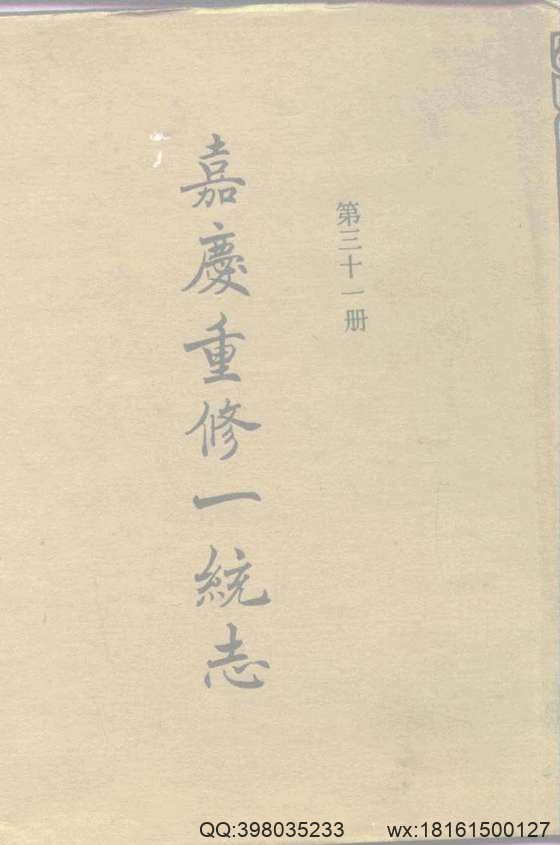 第三十一册
嘉慶重修一統志
QQ:398035233 wx:18161500127